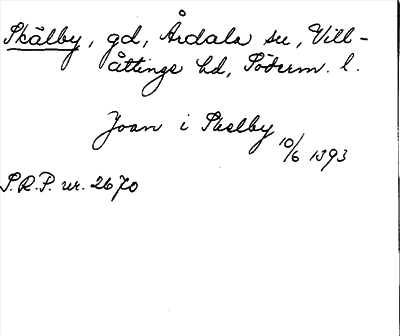 Skälby, gd, Årdala su, Vill-
åttinge hd, Söderm. l.
Joan i Skelby 10/6 1393
S.R.P. nr. 2670